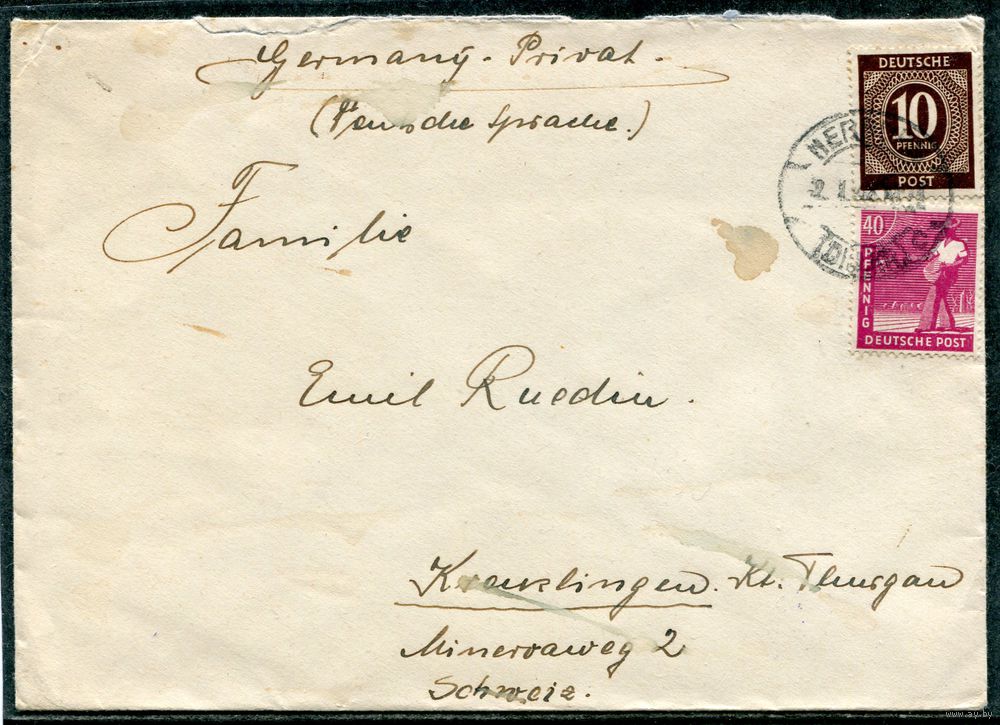 Germany - Privat.
(Deutsche Sprache.)
Familie
Emil Ruedin.
Kreuzlingen. Kt. Thurgau
Minervaweg 2
Schweiz.
DEUTSCHE
10
PFENNIG
POST
40
PFENNIG
DEUTSCHE POST
www.ay.by